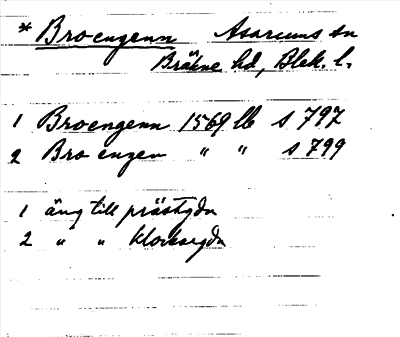 * Broengenn Asarums sn
Bräkne hd, Blek. l.
1 Broengenn 1569 lb s 797
2 Bro engen " " s 799
1 äng till prästgdn
2 " " klockegdn